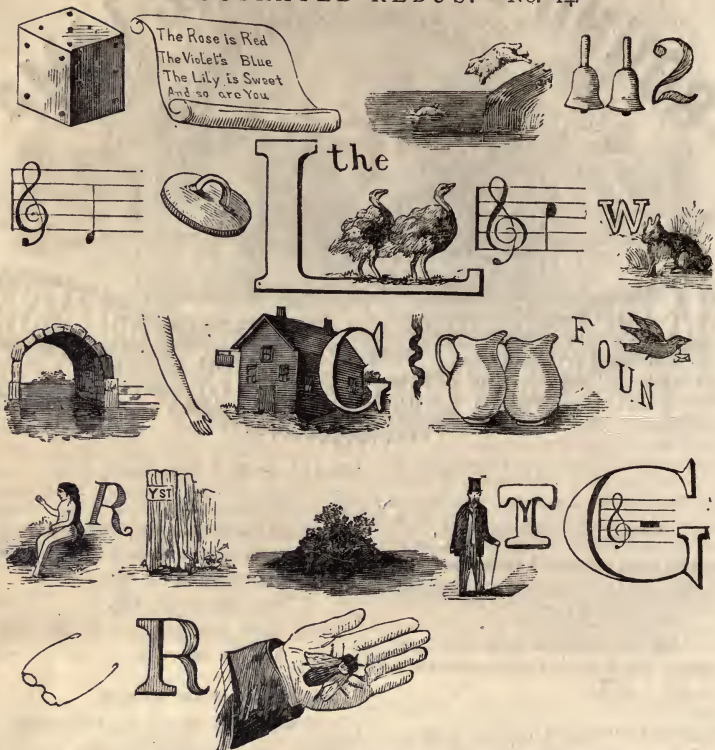 REBUS. No. 14
The Rose is Red
The Violet's Blue
The Lily is Sweet
And so are You
2
L the
W
G
FOUN
R
YST
T
G
R